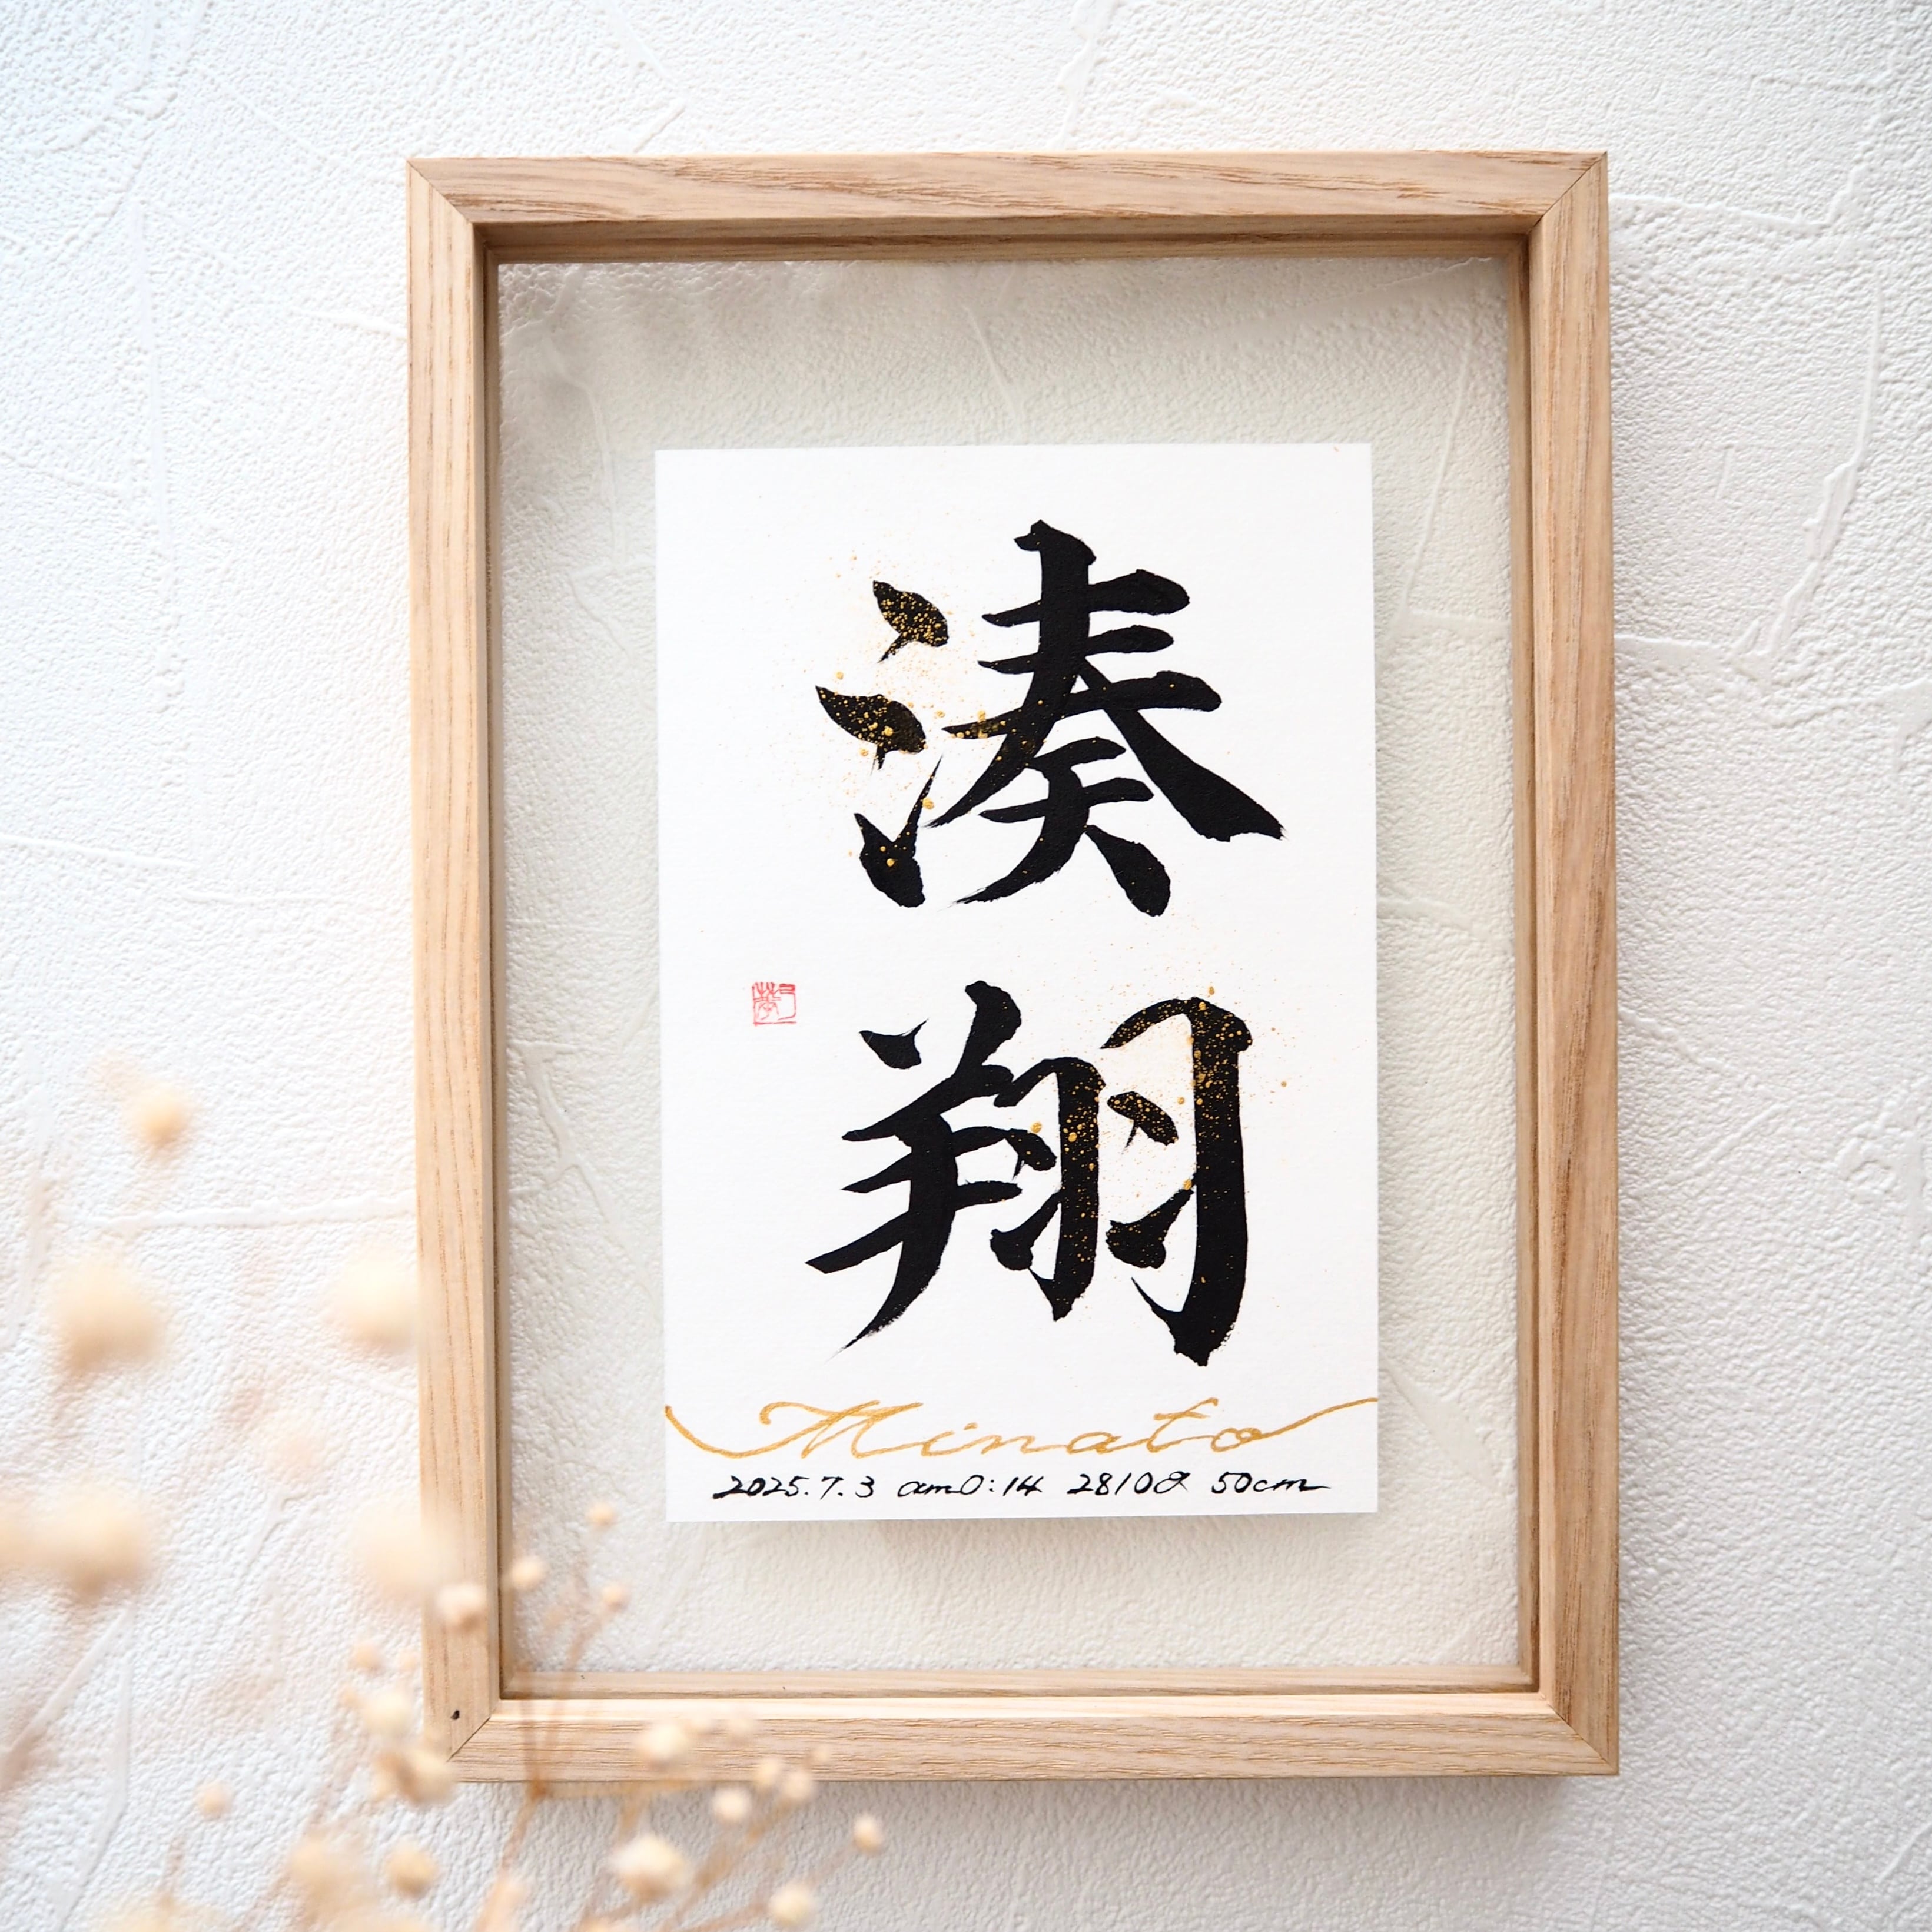 湊翔
Minato
2025.7.3 am0:14 2810g 50cm